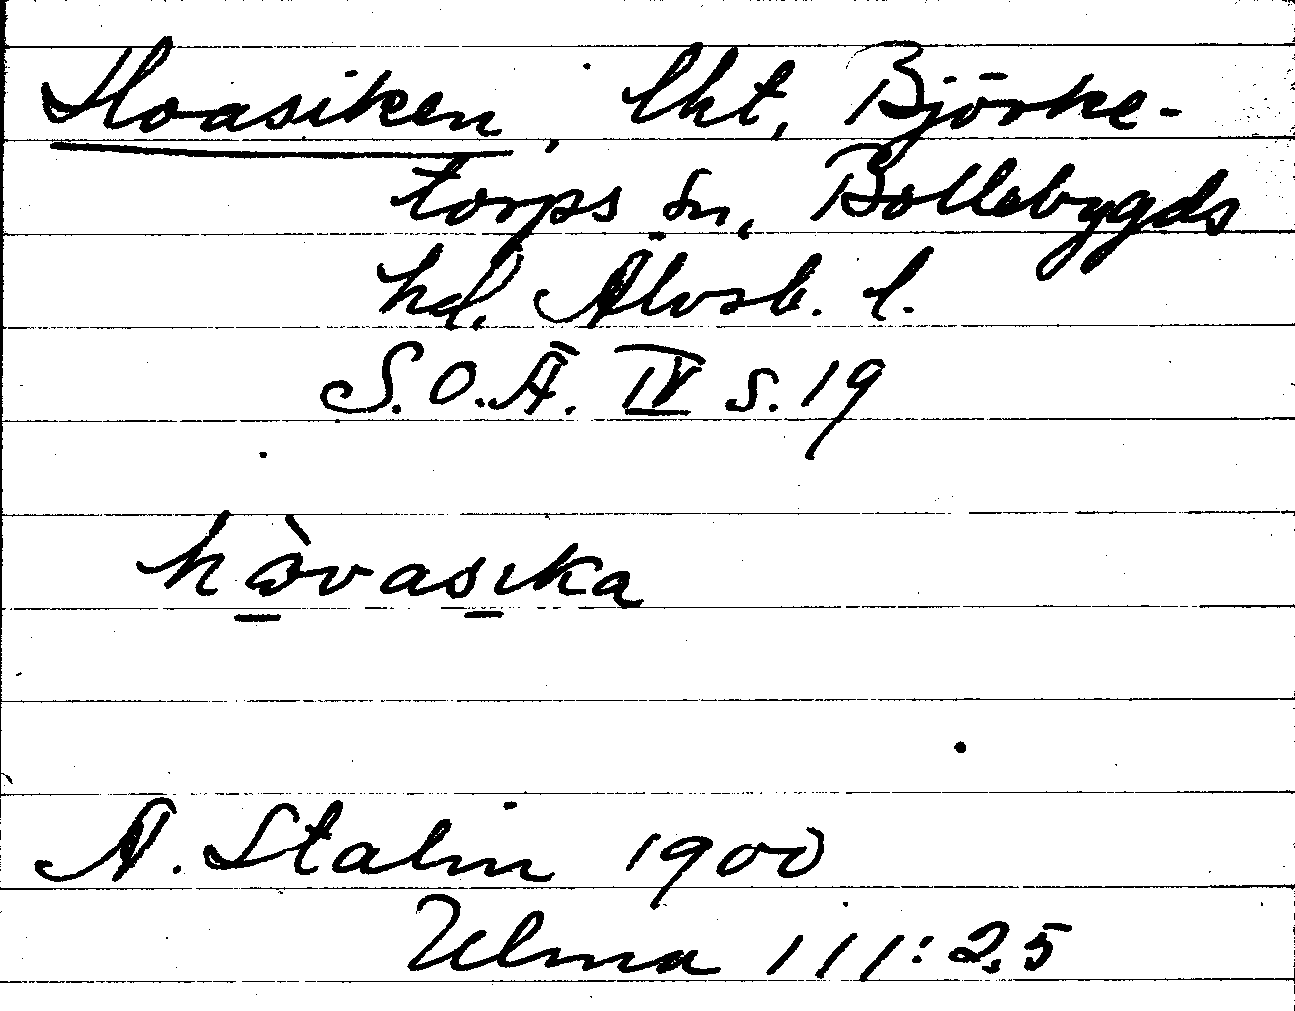 Hoasiken, lht, Björke-
torps sn, Bollebygds
hd, Älvsb. l.
S.O.Ä. IV s. 19
hòvasıka
A. Stalin 1900
Ulma 111:25